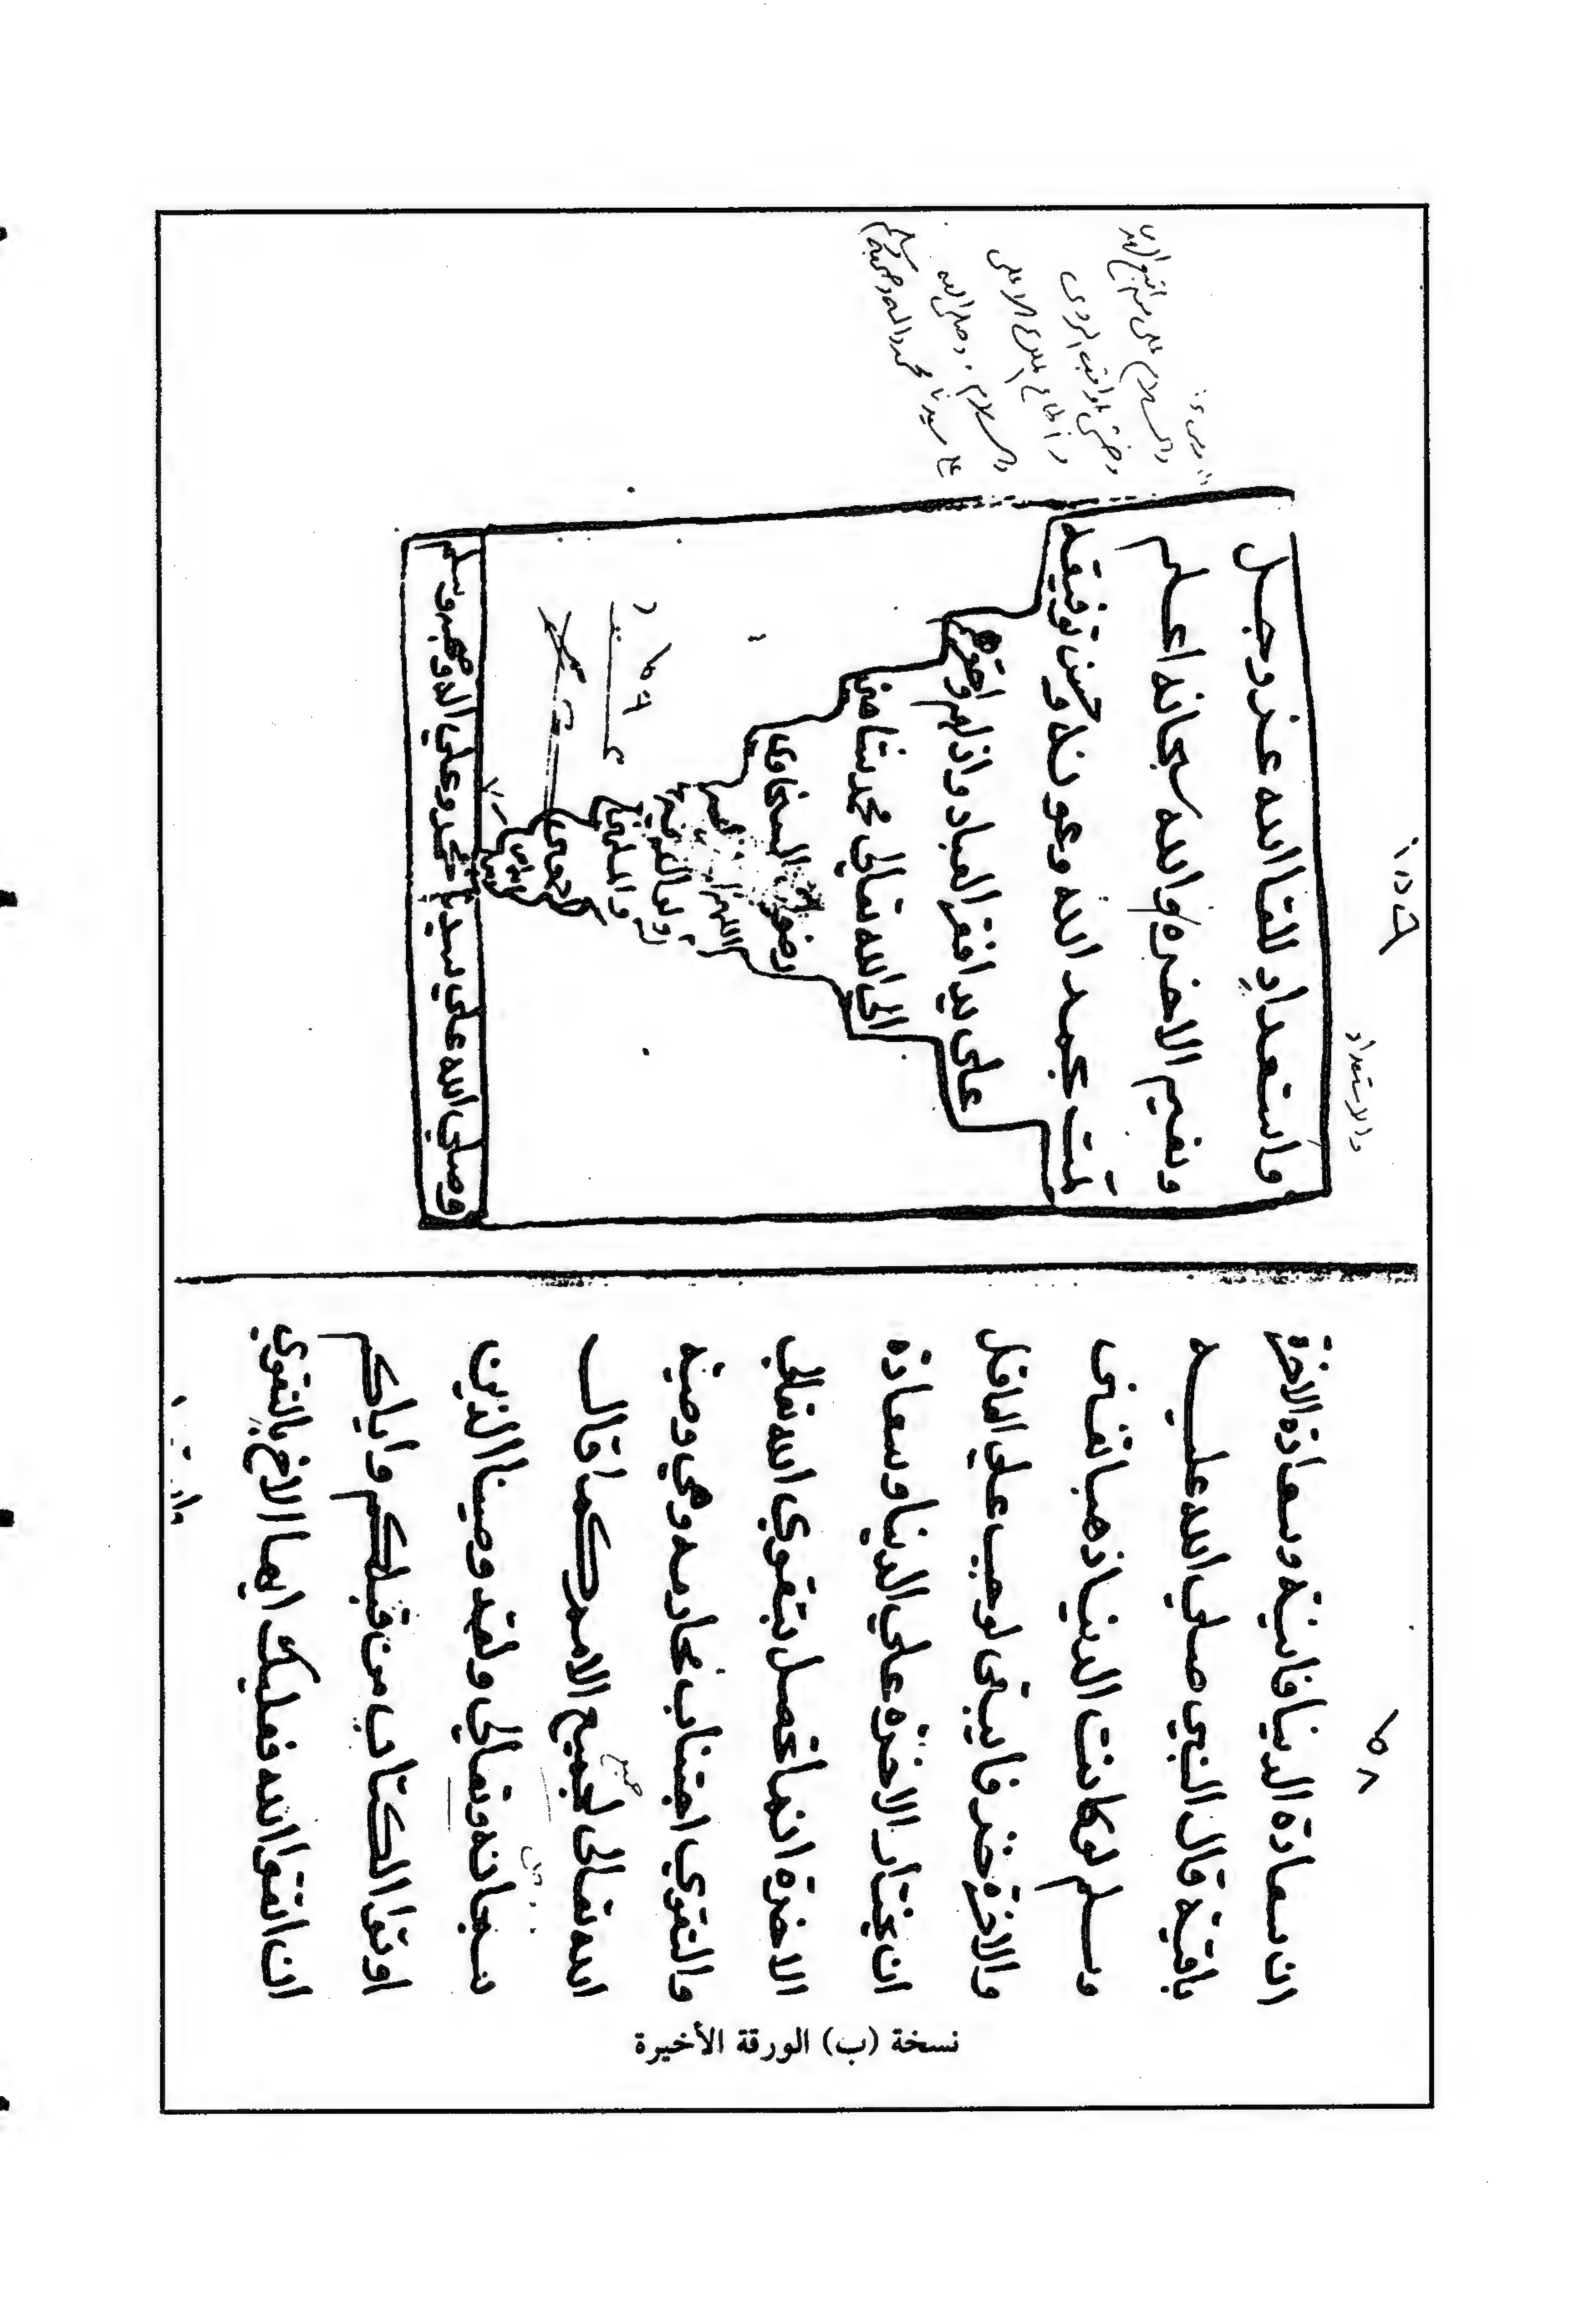 ٥٨
ان سعادة الدنيا فانية وسعادة الاخرة
باقية قال النبي صلي الله عليه
وسلم لوكانت الدنيا ذهبا تفنى
والاخرة خذفا يبقى لوجب علي العاقل
ان يختار الاخرة علي الدنيا وسعادة
الاخرة انما تحصل بتقوي الله تعالى
والتقوي اجتناب محارمه وهي وصية
الله تعالى لجميع الامم كما قال
سبحانه وتعالي ولقد وصينا الذين
اوتوا الكتاب من قبلكم واياكم
ان اتقوا الله فعليك ايها الاخ بالتقوي
والاستعداد
واستعداد للقا الله عز وجل
ونعيم الاخرة والله سبحانه اعلم
تمت بحمد الله وعونه وحسن توفيقه
على يد افقر العباد واذلهم واحقرهم
الى الله تعالى محمد شاهين
السخاوى
ولوالديه
وصلي الله علي سيدنا محمد وعلي اله وصحبه وسلم
٥٩
والسلام على من اتبع الهدى
والسلام . وصلى الله
على سيدنا محمد واله وصحبه وسلم
نسخة (ب) الورقة الأخيرة